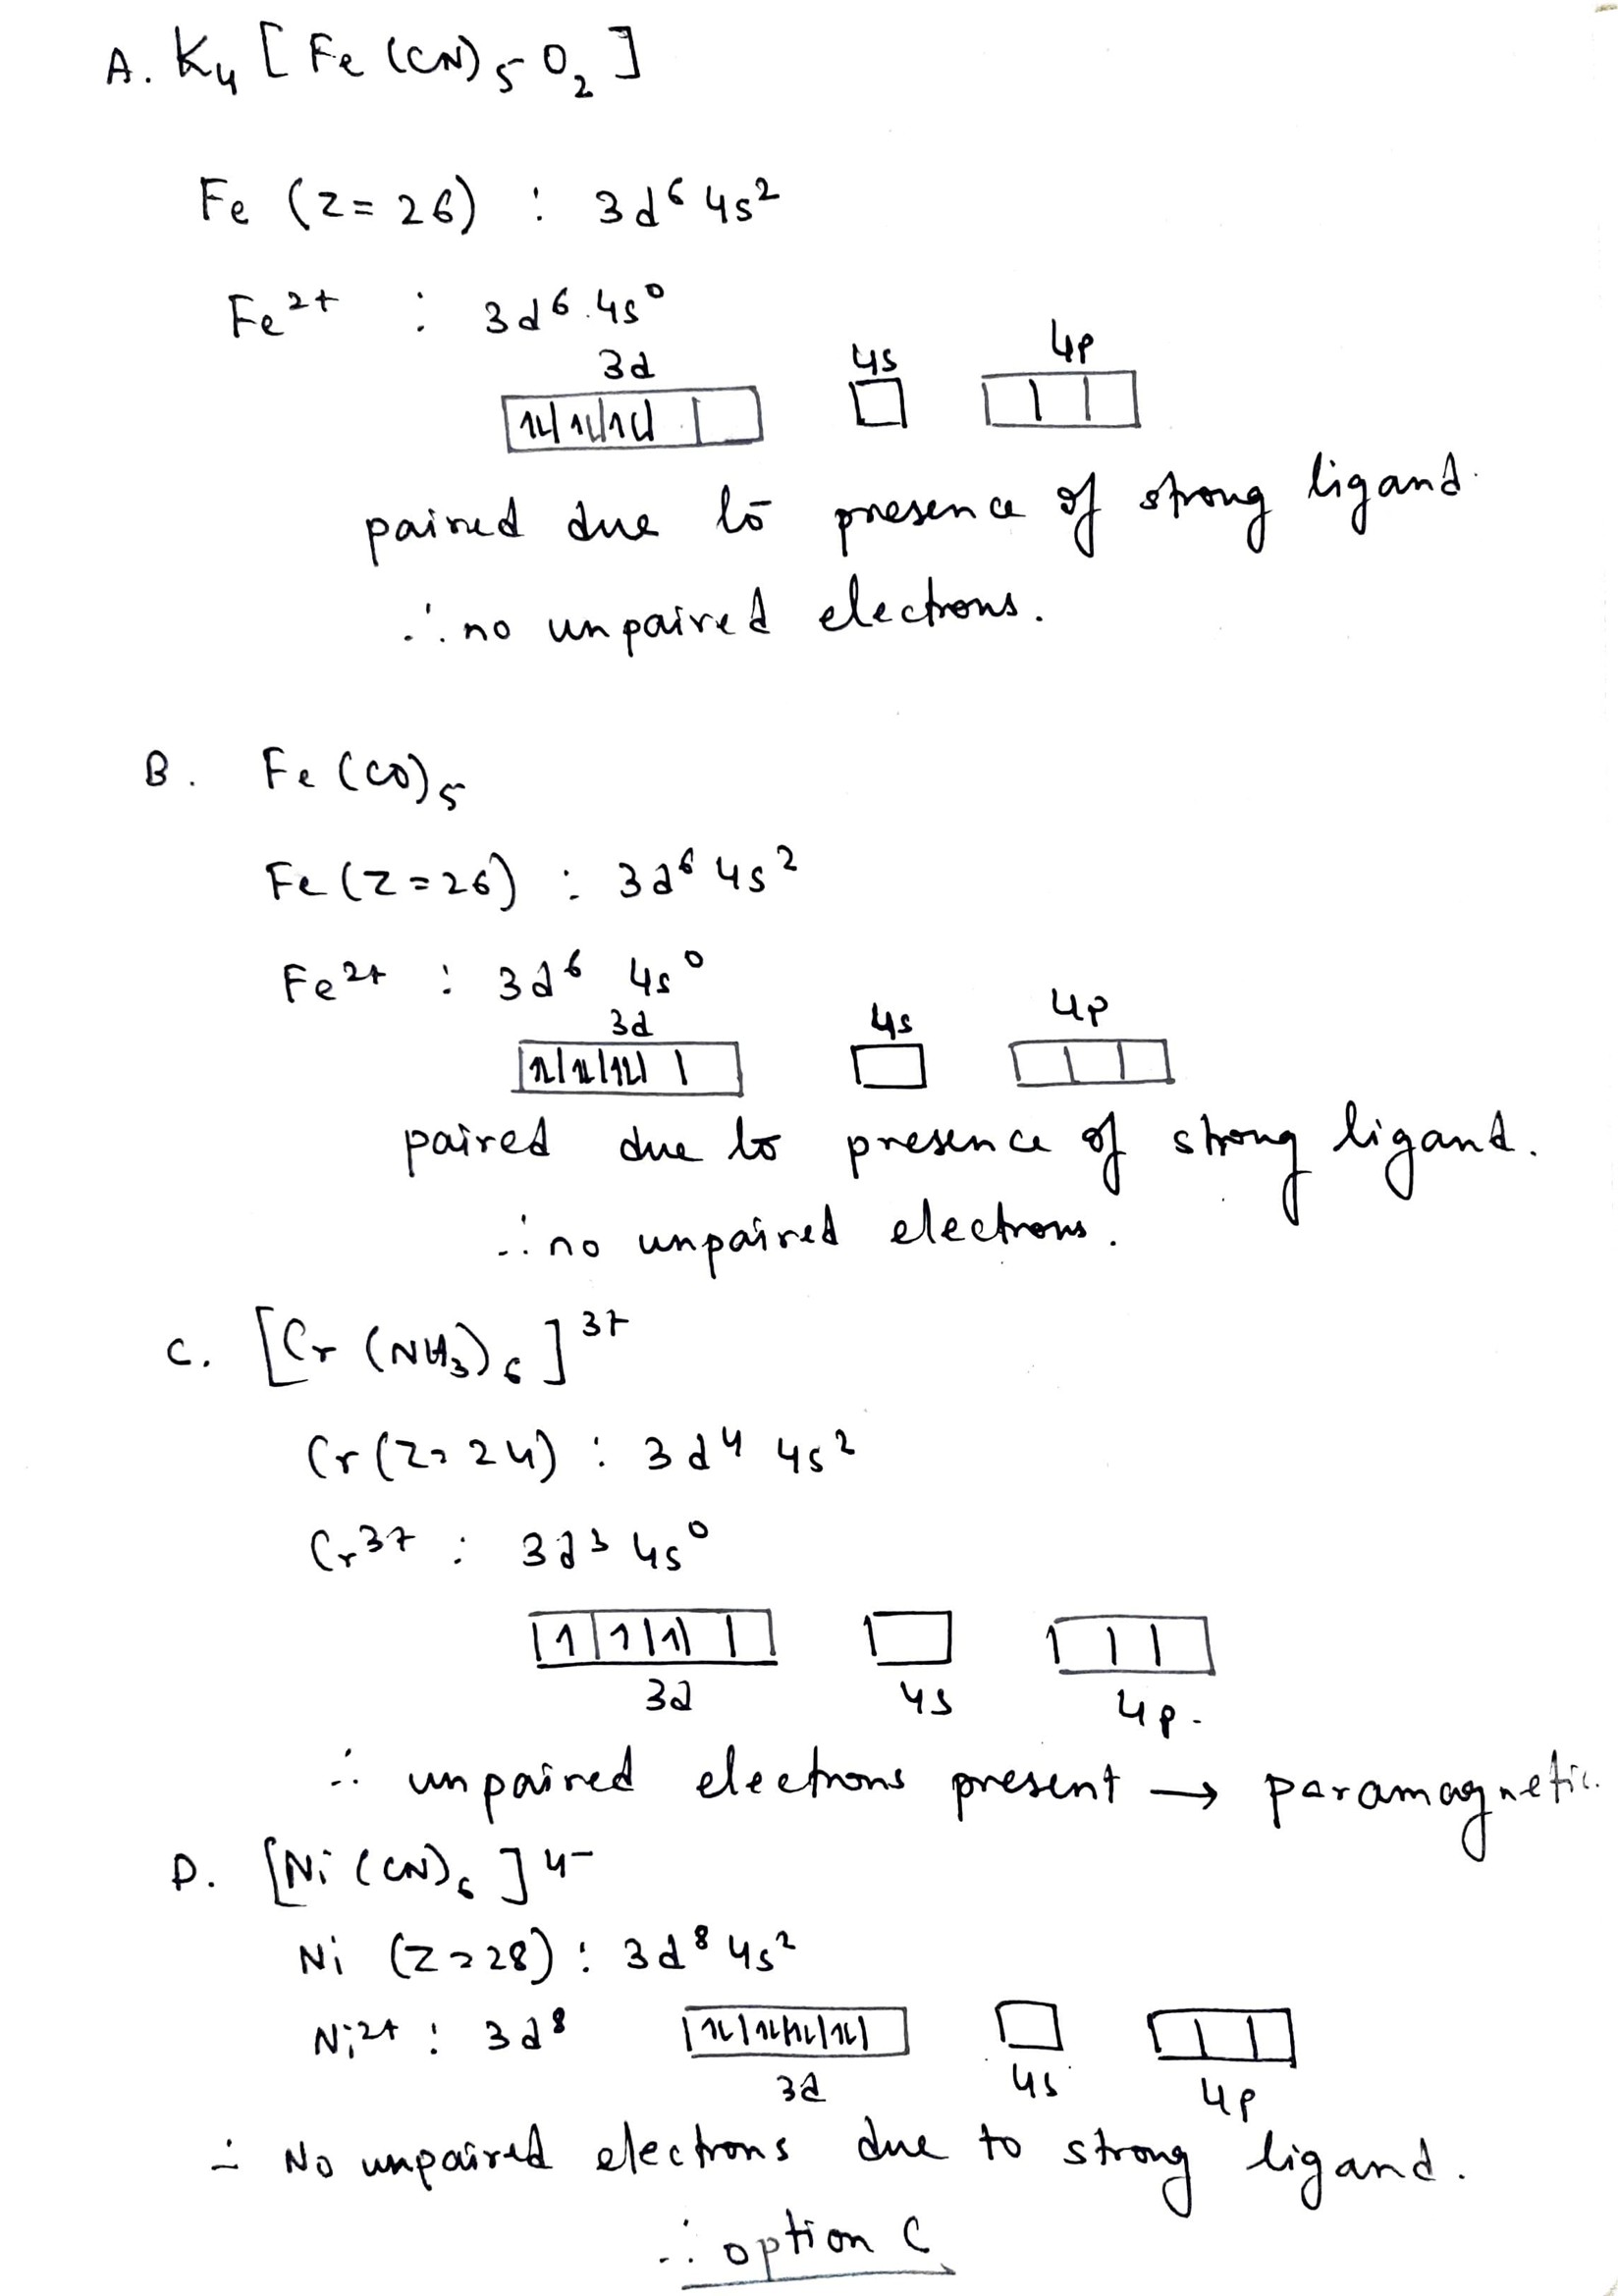 A. K₄ [ Fe (CN)₅ O₂ ]
Fe (Z = 26) : 3d⁶ 4s²
Fe²⁺ : 3d⁶ 4s⁰
3d 4s 4p
1L 1L 1L
paired due to presence of strong ligand.
∴ no unpaired electrons.
B. Fe (CO)₅
Fe (Z = 26) : 3d⁶ 4s²
Fe²⁺ : 3d⁶ 4s⁰
3d 4s 4p
1L 1L 1L
paired due to presence of strong ligand.
∴ no unpaired electrons.
C. [Cr (NH₃)₆ ]³⁺
Cr (Z = 24) : 3d⁴ 4s²
Cr³⁺ : 3d³ 4s⁰
1 1 1
3d 4s 4p.
∴ unpaired electrons present → paramagnetic.
D. [Ni (CN)₆ ]⁴⁻
Ni (Z = 28) : 3d⁸ 4s²
Ni²⁺ : 3d⁸ 1L 1L 1L 1L
3d 4s 4p
∴ No unpaired electrons due to strong ligand.
∴ option C